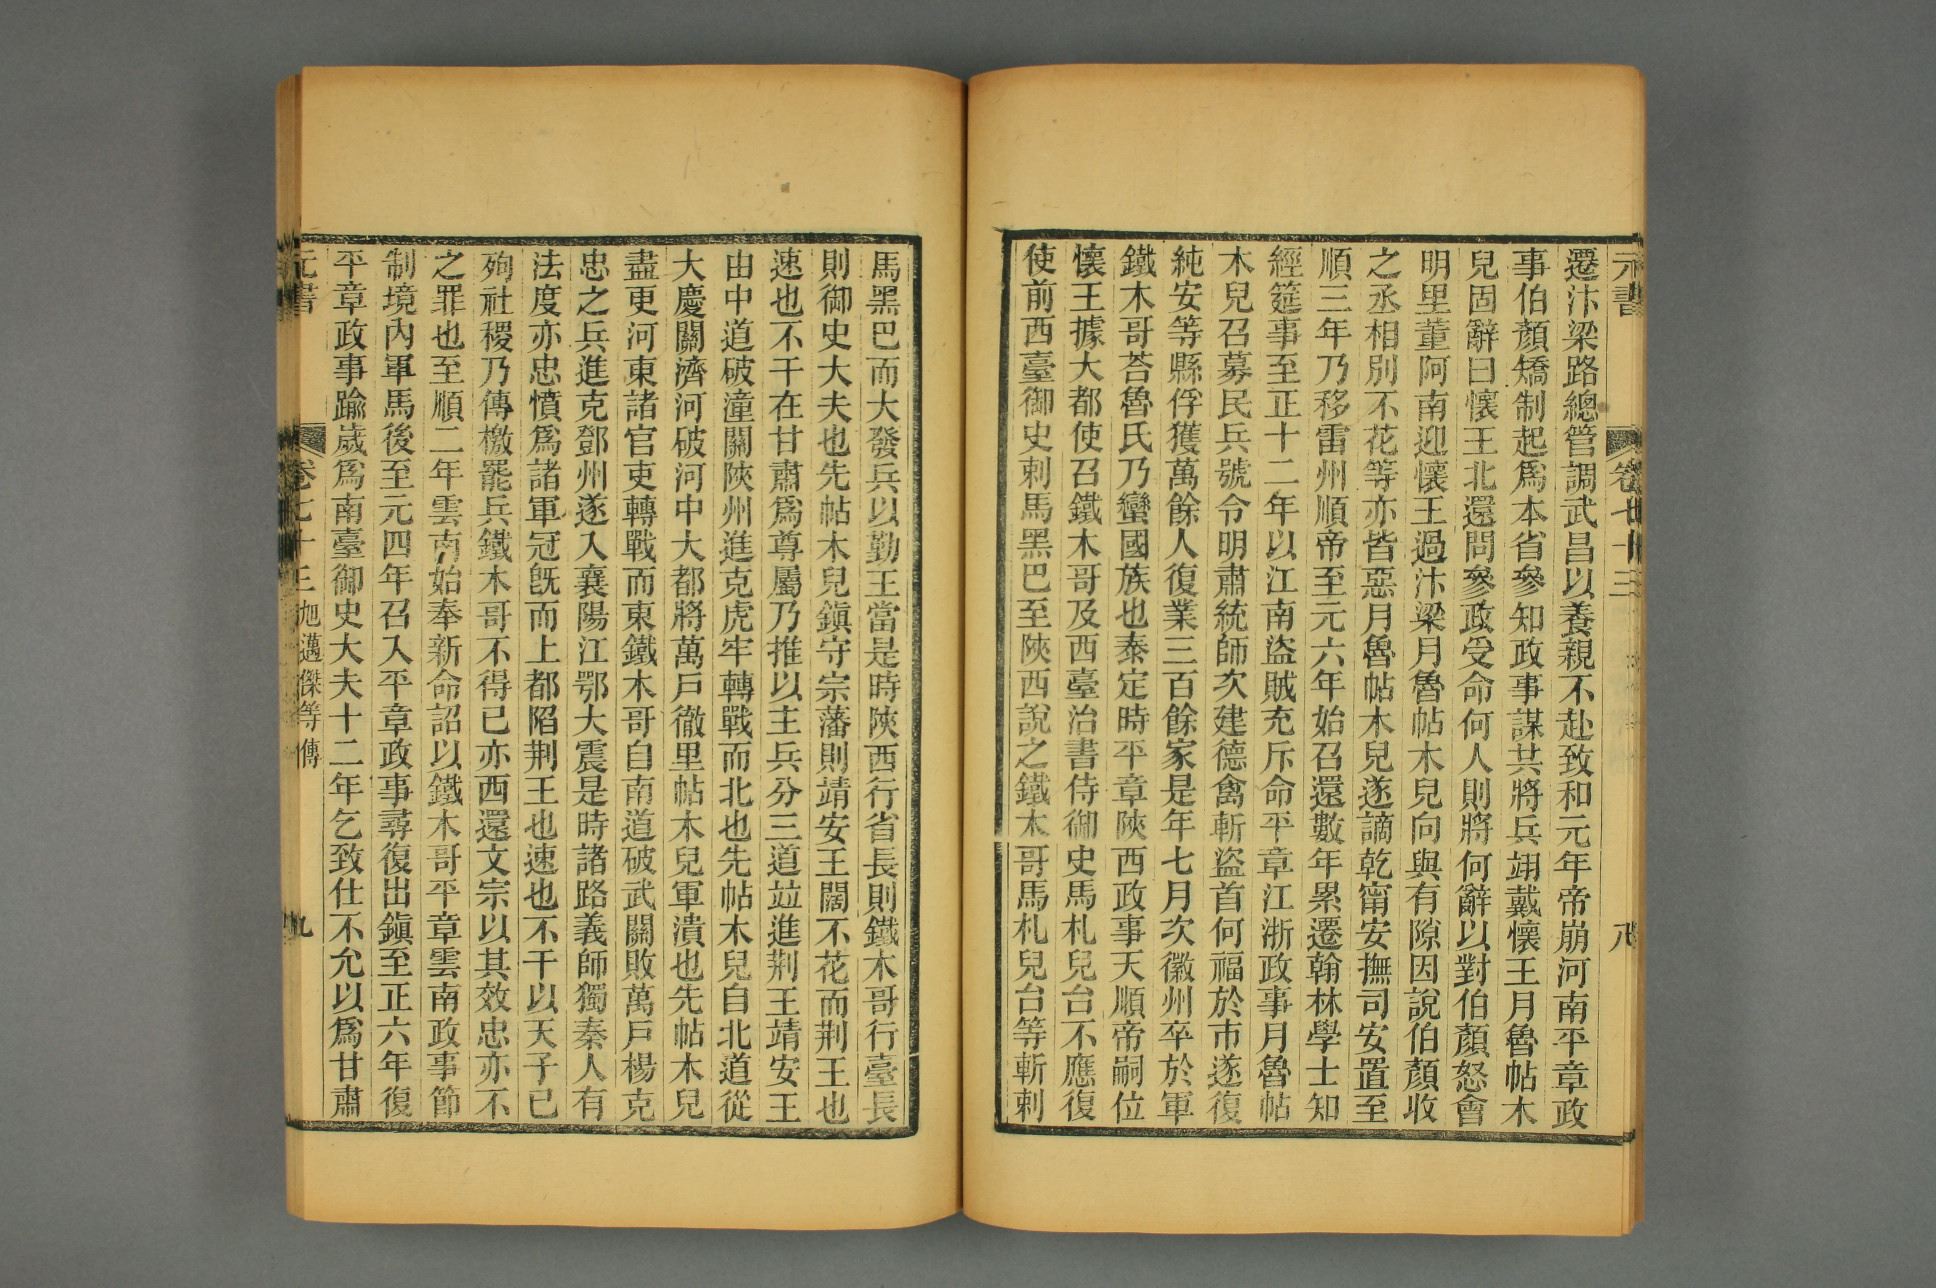 元書 卷七十三 八
遷汴梁路總管調武昌以養親不赴致和元年帝崩河南平章政
事伯顏矯制起爲本省參知政事謀共將兵翊戴懷王月魯帖木
兒固辭曰懷王北還問參政受命何人則將何辭以對伯顏怒會
明里董阿南迎懷王過汴梁月魯帖木兒向與有隙因說伯顏收
之丞相別不花等亦皆惡月魯帖木兒遂謫乾甯安撫司安置至
順三年乃移雷州順帝至元六年始召還數年累遷翰林學士知
經筵事至正十二年以江南盜賊充斥命平章江浙政事月魯帖
木兒召募民兵號令明肅統師次建德禽斬盜首何福於市遂復
純安等縣俘獲萬餘人復業三百餘家是年七月次徽州卒於軍
鐵木哥荅魯氏乃蠻國族也泰定時平章陝西政事天順帝嗣位
懷王據大都使召鐵木哥及西臺治書侍御史馬札兒台不應復
使前西臺御史剌馬黑巴至陝西說之鐵木哥馬札兒台等斬剌
馬黑巴而大發兵以勤王當是時陝西行省長則鐵木哥行臺長
則御史大夫也先帖木兒鎭守宗藩則靖安王闊不花而荆王也
速也不干在甘肅爲尊屬乃推以主兵分三道竝進荆王靖安王
由中道破潼關陝州進克虎牢轉戰而北也先帖木兒自北道從
大慶關濟河破河中大都將萬戶徹里帖木兒軍潰也先帖木兒
盡更河東諸官吏轉戰而東鐵木哥自南道破武關敗萬戶楊克
忠之兵進克鄧州遂入襄陽江鄂大震是時諸路義師獨秦人有
法度亦忠憤爲諸軍冠旣而上都陷荆王也速也不干以天子已
殉社稷乃傳檄罷兵鐵木哥不得已亦西還文宗以其效忠亦不
之罪也至順二年雲南始奉新命詔以鐵木哥平章雲南政事節
制境內軍馬後至元四年召入平章政事尋復出鎭至正六年復
平章政事踰歲爲南臺御史大夫十二年乞致仕不允以爲甘肅
元書 卷七十三 旭邁傑等傳 九